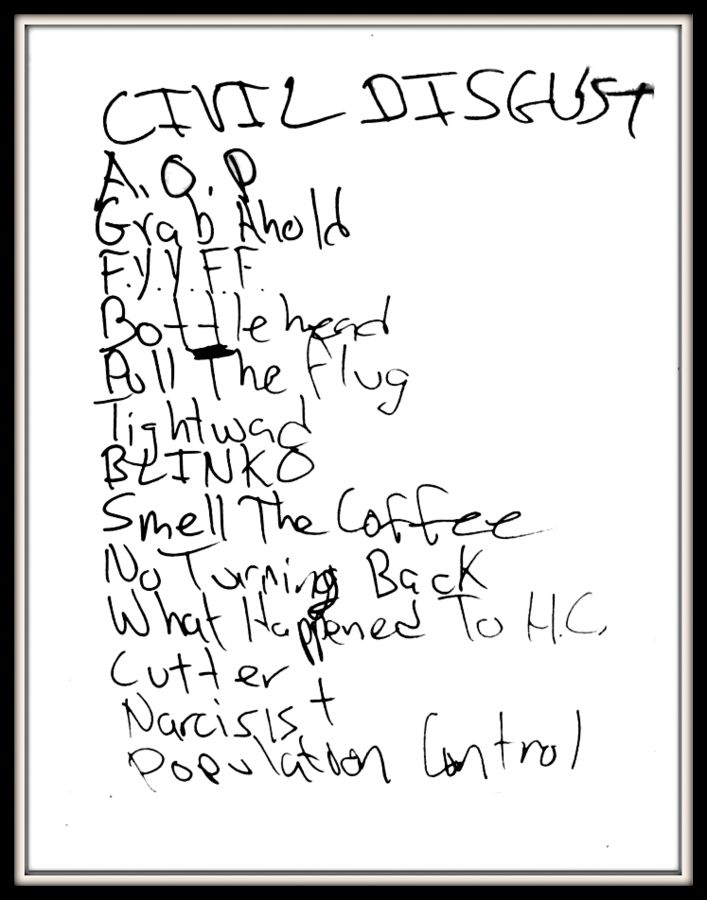 CIVIL DISGUST
A.O.P
Grab Ahold
F.Y.Y.F.F.
Bottlehead
Pull The Plug
Tightwad
BLINKO
Smell The Coffee
No Turning Back
What Happened To H.C.
Cutter
Narcisist
Population Control